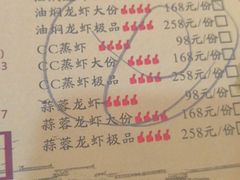 油焖龙虾大份 168元/份□
油焖龙虾极品 258元/份□
CC蒸虾 98元/份□
CC蒸虾大份 168元/份□
CC蒸虾极品 258元/份□
蒜蓉龙虾 98元/份□
蒜蓉龙虾大份 168元/份□
蒜蓉龙虾极品 258元/份□